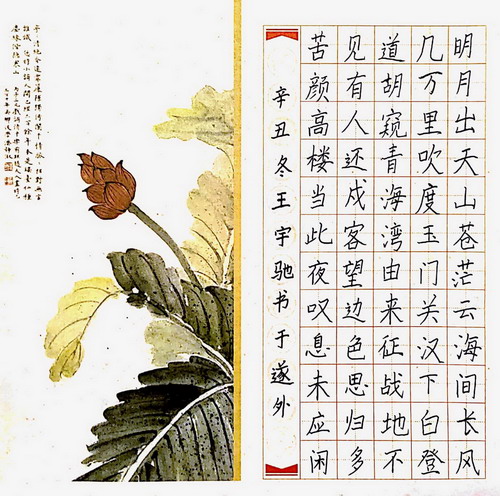 明月出天山苍茫云海间长风
几万里吹度玉门关汉下白登
道胡窥青海湾由来征战地不
见有人还戍客望边色思归多
苦颜高楼当此夜叹息未应闲
辛丑冬王宇驰书于遂外